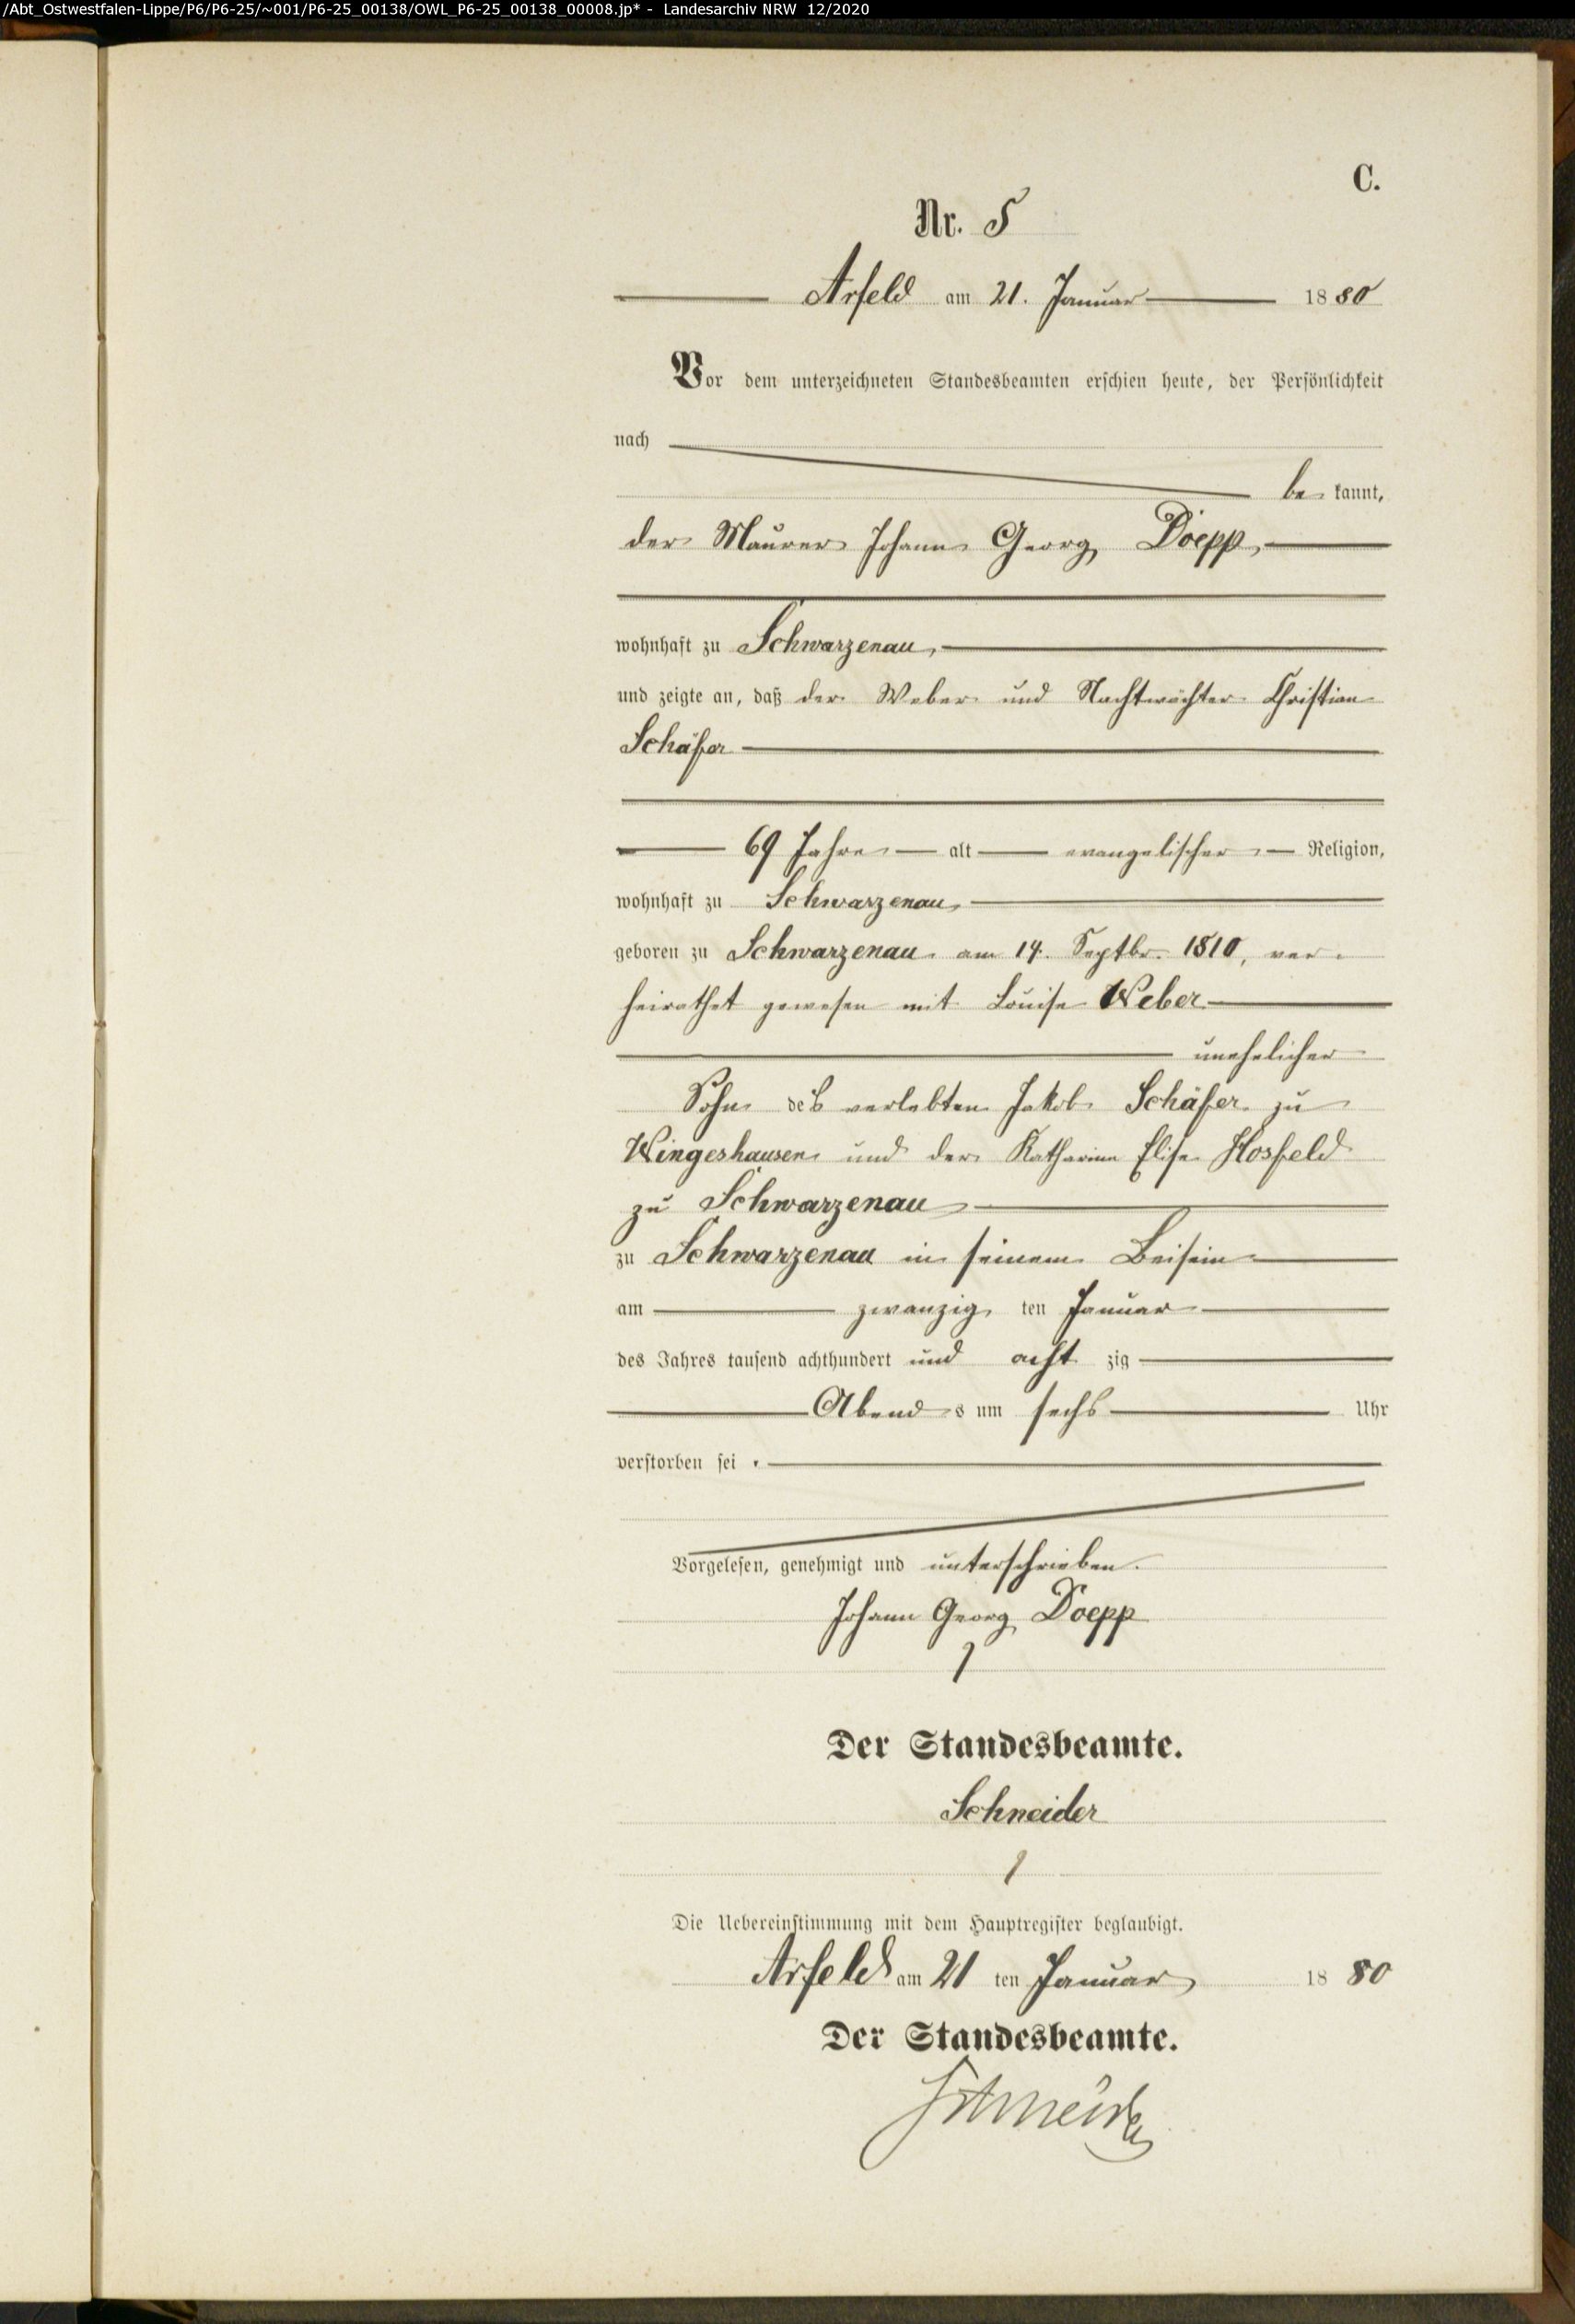 /Abt_Ostwestfalen-Lippe/P6/P6-25/~001/P6-25_00138/OWL_P6-25_00138_00008.jp* - Landesarchiv NRW 12/2020
C.
Nr. 5
Arfeld am 21. Januar 1880
Vor dem unterzeichneten Standesbeamten erschien heute, der Persönlichkeit
nach
be kannt,
der Maurer Johann Georg Doepp,
wohnhaft zu Schwarzenau,
und zeigte an, daß der Weber und Nachtwächter Christian
Schäfer
69 Jahre alt evangelischer Religion,
wohnhaft zu Schwarzenau,
geboren zu Schwarzenau am 14. Septbr. 1810, ver-
heirathet gewesen mit Louise Weber
unehelicher
Sohn des verlebten Jakob Schäfer zu
Wingeshausen und der Katharina Elise Hosfeld
zu Schwarzenau
zu Schwarzenau in seinem Beisein
am zwanzig ten Januar
des Jahres tausend achthundert und acht zig
Abend s um sechs Uhr
verstorben sei.
Vorgelesen, genehmigt und unterschrieben.
Johann Georg Doepp
Der Standesbeamte.
Schneider
Die Uebereinstimmung mit dem Hauptregister beglaubigt.
Arfeld am 21 ten Januar 1880
Der Standesbeamte.
Schneider